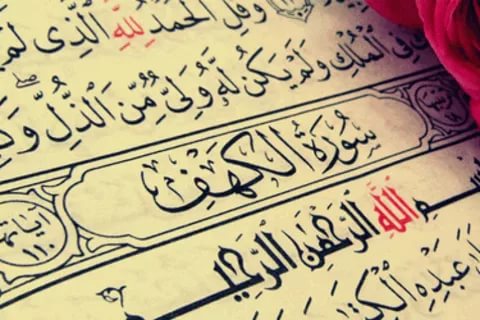 وَقُلِ ٱلْحَمْدُ لِلَّهِ ٱلَّذِى لَمْ
فِى ٱلْمُلْكِ وَلَمْ يَكُن لَّهُۥ وَلِىٌّ مِّنَ ٱلذُّلِّ وَ
سُورَةُ الكَهْفِ
آيَاتُهَا ١١٠
ـسْمِ ٱللَّهِ ٱلرَّحْمَٰنِ ٱلرَّحِيمِ
عَبْدِهِ ٱلْكِتَـ